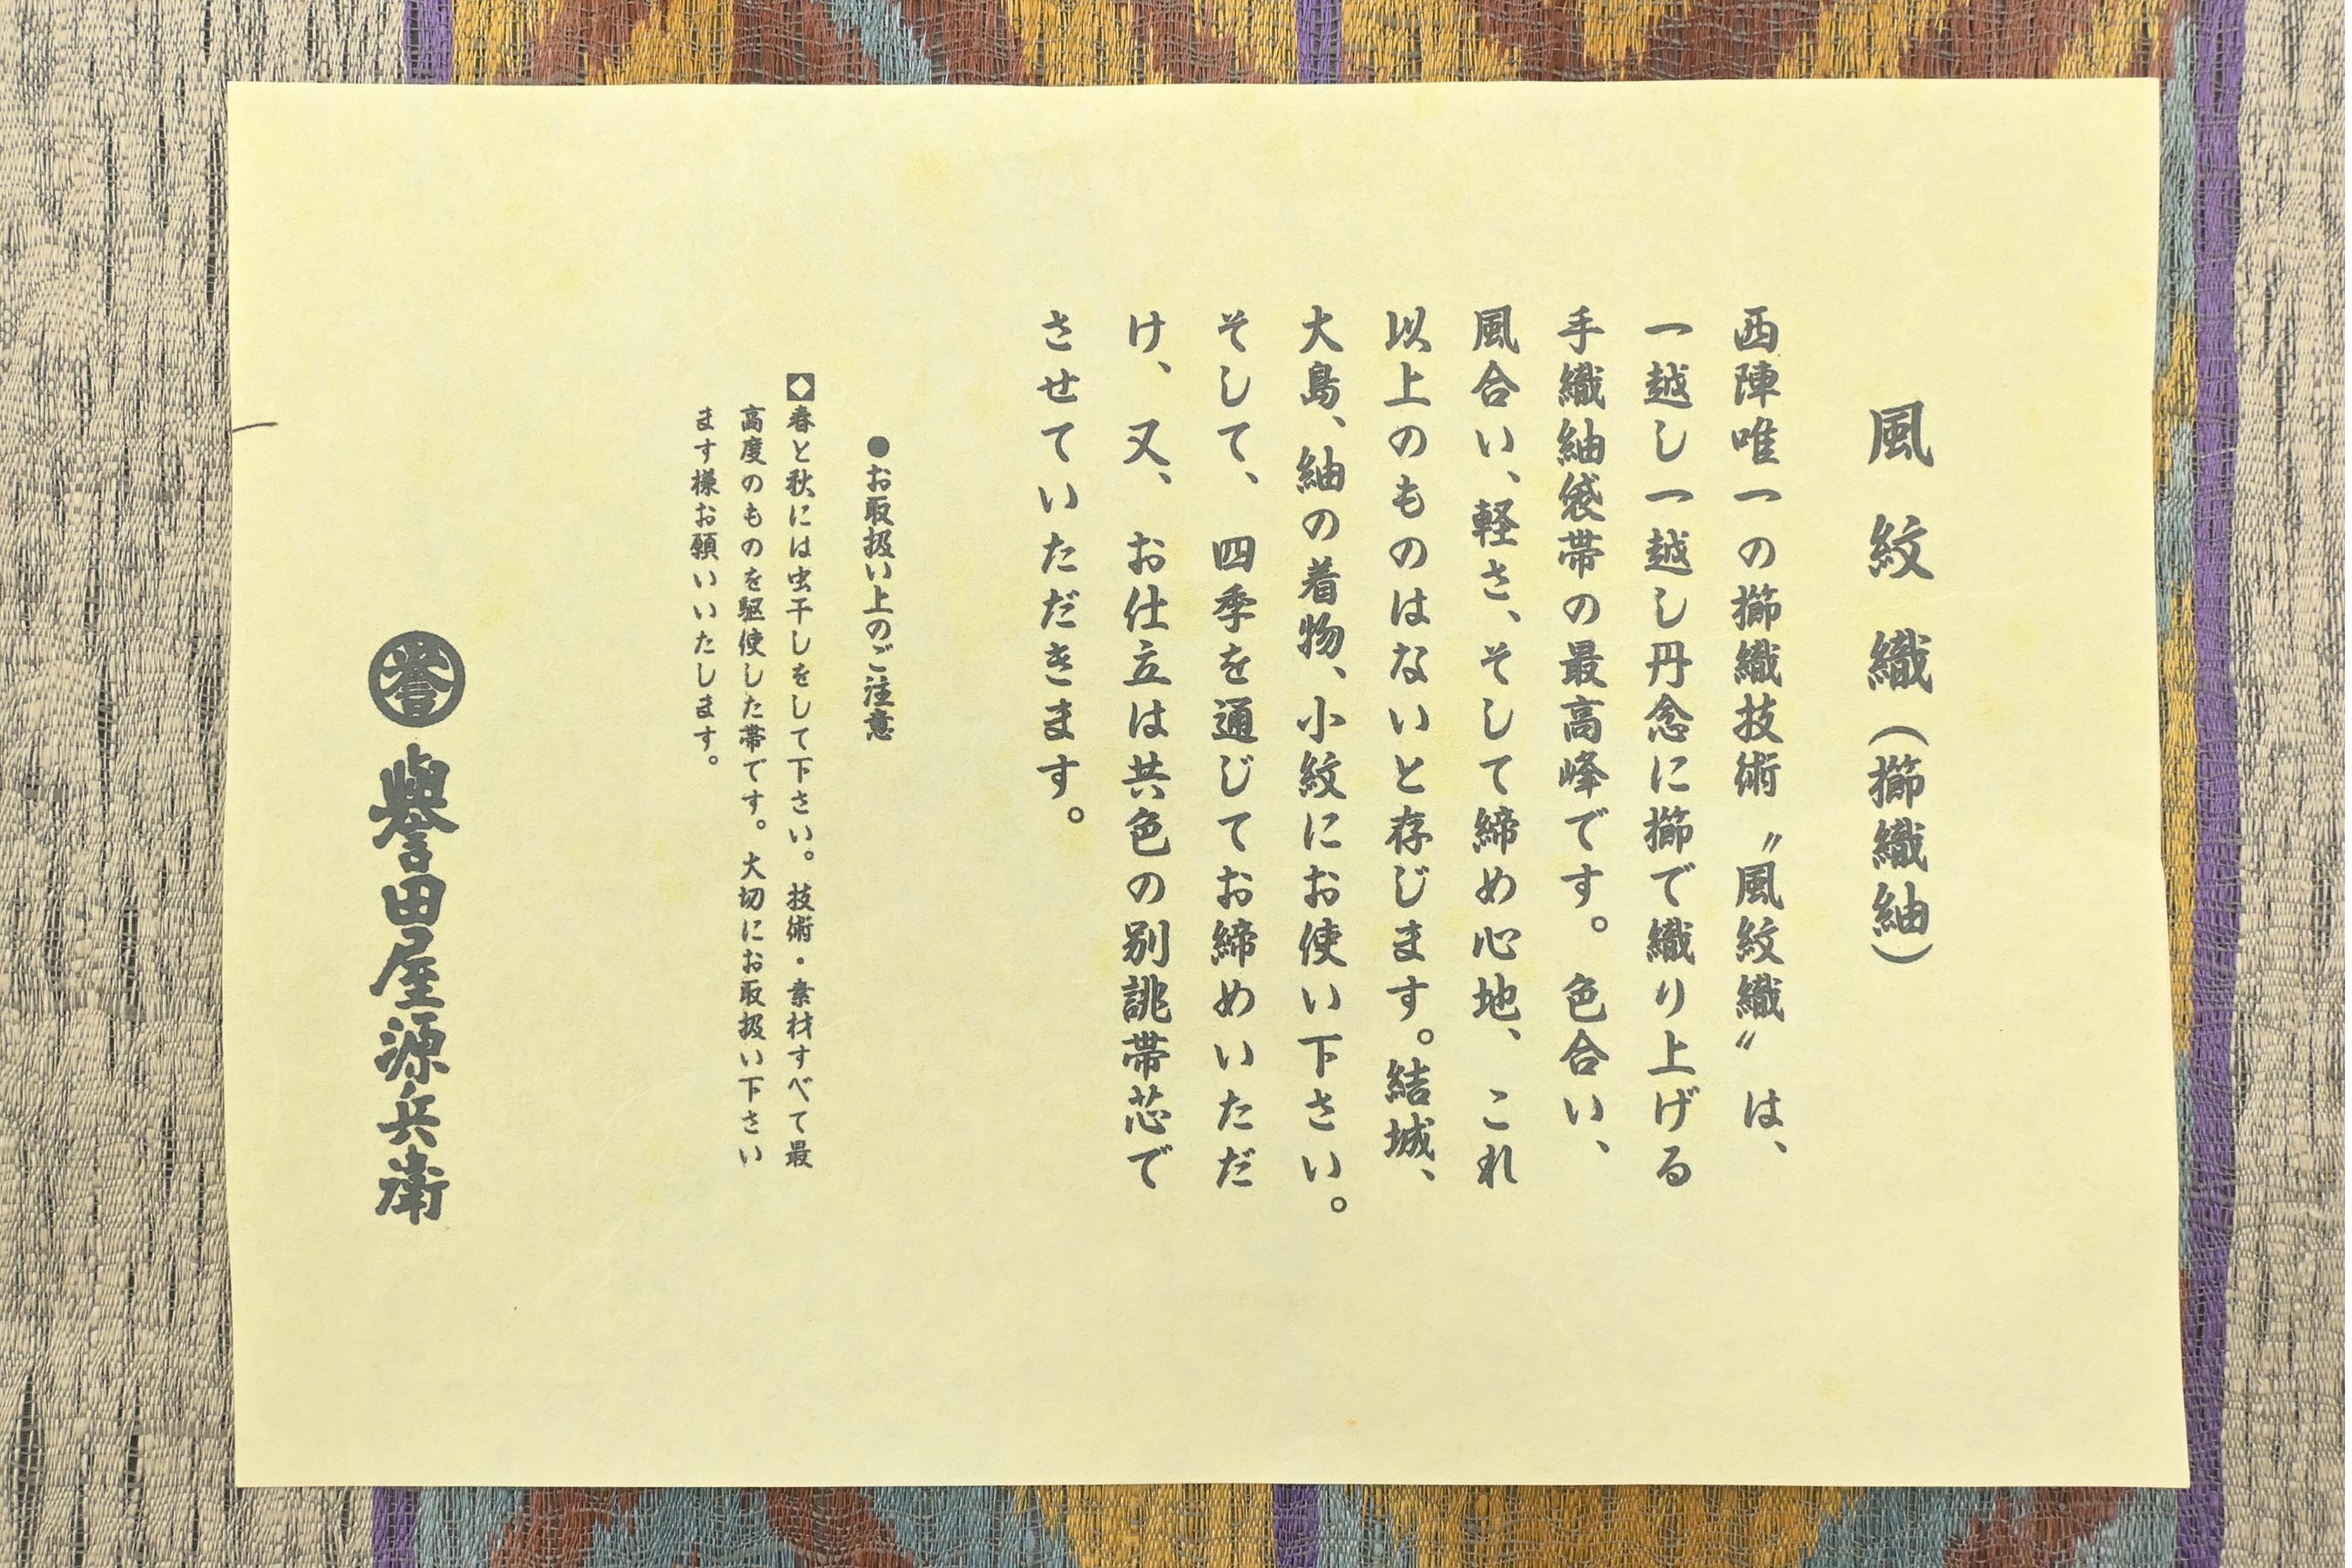 風紋織(擳織紬)
西陣唯一の擳織技術〝風紋織〟は、
一越し一越し丹念に擳で織り上げる
手織紬袋帯の最高峰です。色合い、
風合い、軽さ、そして締め心地、これ
以上のものはないと存じます。結城、
大島、紬の着物、小紋にお使い下さい。
そして、四季を通じてお締めいただ
け、又、お仕立は共色の別誂帯芯で
させていただきます。
●お取扱い上のご注意
◇春と秋には虫干しをして下さい。技術・素材すべて最
高度のものを駆使した帯です。大切にお取扱い下さい
ます様お願いいたします。
誉 譽田屋源兵衛